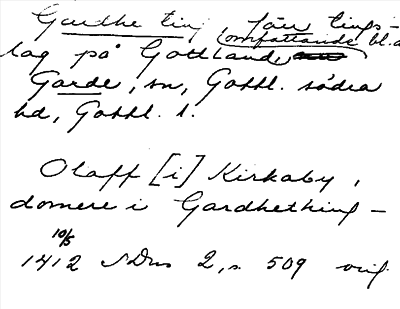 Gardhe ting, förr tings-
omfattande bl.a
lag på Gottland,
Garde, sn, Gotl. södra
hd, Gotl. l.
Olaff [i] Kirkaby,
domere i Gardhething -
10/5
1412 SDns 2, s. 509 orig